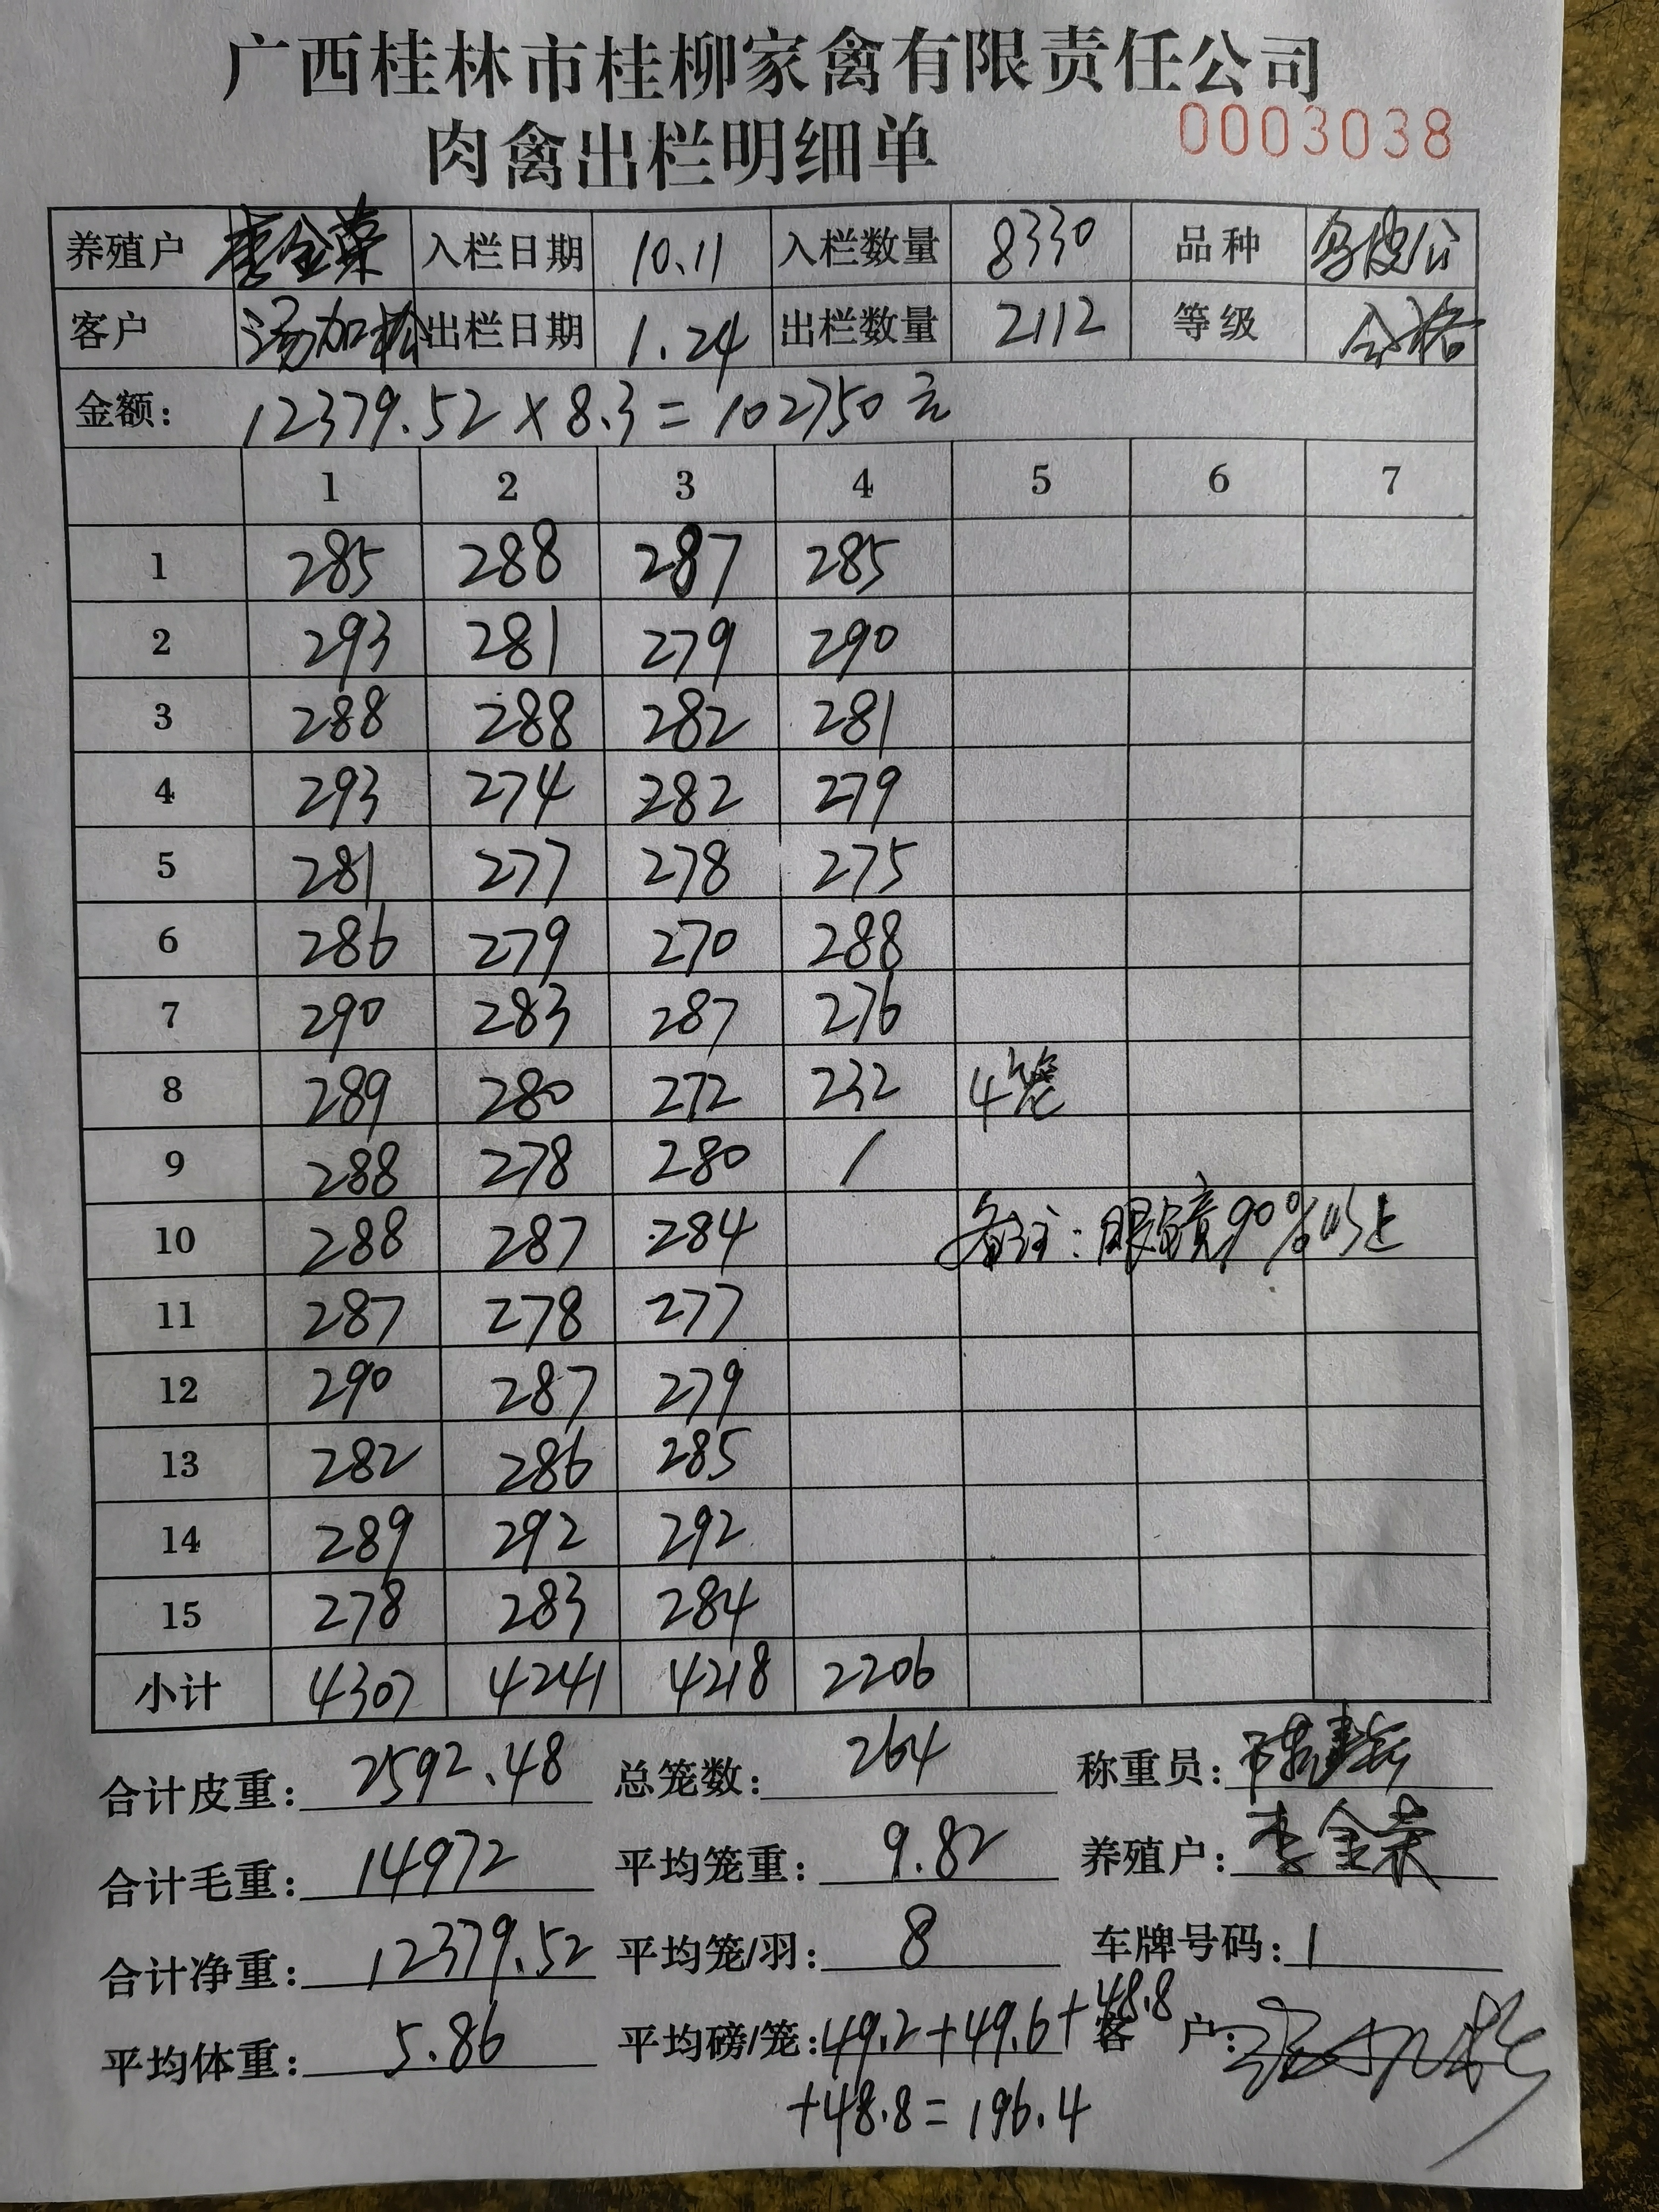 广西桂林市桂柳家禽有限责任公司
肉禽出栏明细单 0003038
养殖户 李金荣 入栏日期 10.11 入栏数量 8330 品种 乌皮公
客户 汤加松 出栏日期 1.24 出栏数量 2112 等级 合格
金额: 12379.52×8.3=102750元
1 2 3 4 5 6 7
1 285 288 287 285
2 293 281 279 290
3 288 288 282 281
4 293 274 282 279
5 281 277 278 275
6 286 279 270 288
7 290 283 287 276
8 289 280 272 232 4笼
9 288 278 280 /
10 288 287 284 备注:眼镜90%以上
11 287 278 277
12 290 287 279
13 282 286 285
14 289 292 292
15 278 283 284
小计 4307 4241 4218 2206
合计皮重: 2592.48 总笼数: 264 称重员:
合计毛重: 14972 平均笼重: 9.82 养殖户: 李金荣
合计净重: 12379.52 平均笼/羽: 8 车牌号码: 1
平均体重: 5.86 平均磅/笼: 49.2+49.6+48.8 客户:
+48.8=196.4